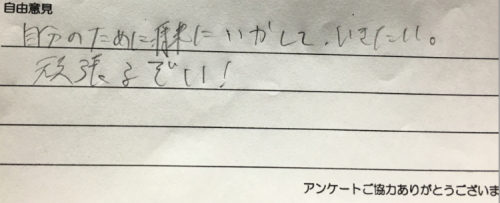 自由意見
自分のために将来にいかして、いきたい。
頑張るぞい!
アンケートご協力ありがとうございま